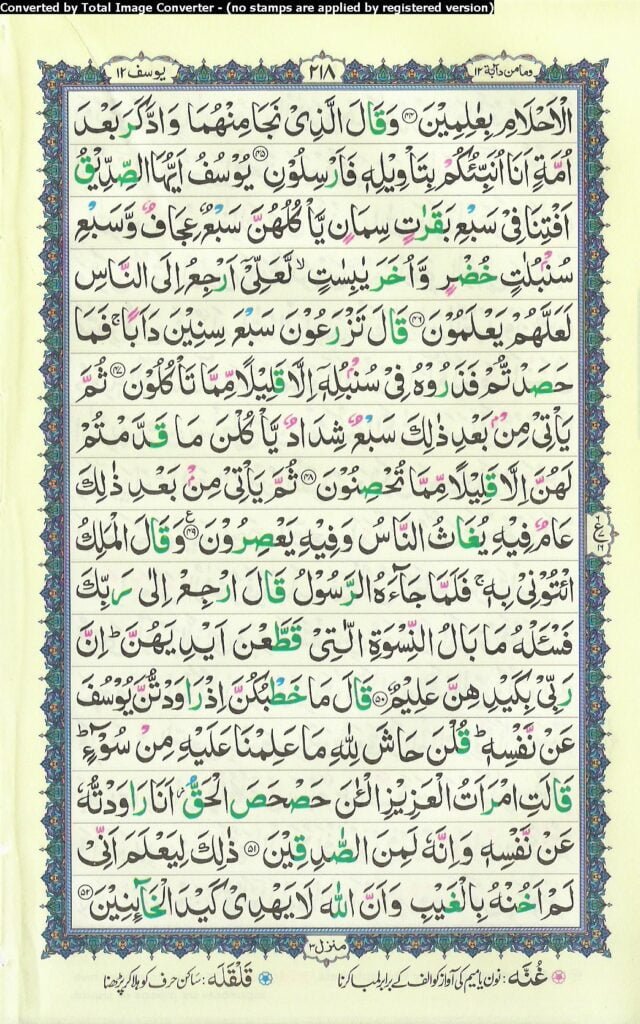 Converted by Total Image Converter - (no stamps are applied by registered version)
وما من دآبة ١٢ ٢١٨ یوسف ١٢
الْاَحْلَامِ بِعٰلِمِیْنَ ﴿۴۴﴾ وَقَالَ الَّذِیْ نَجَا مِنْهُمَا وَادَّكَرَ بَعْدَ
اُمَّةٍ اَنَا اُنَبِّئُكُمْ بِتَاْوِیْلِهٖ فَاَرْسِلُوْنِ ﴿۴۵﴾ یُوْسُفُ اَیُّهَا الصِّدِّیْقُ
اَفْتِنَا فِیْ سَبْعِ بَقَرٰتٍ سِمَانٍ یَّاْكُلُهُنَّ سَبْعٌ عِجَافٌ وَّسَبْعِ
سُنْۢبُلٰتٍ خُضْرٍ وَّاُخَرَ یٰبِسٰتٍ ۙ لَّعَلِّیْۤ اَرْجِعُ اِلَی النَّاسِ
لَعَلَّهُمْ یَعْلَمُوْنَ ﴿۴۶﴾ قَالَ تَزْرَعُوْنَ سَبْعَ سِنِیْنَ دَاَبًا ۚ فَمَا
حَصَدْتُّمْ فَذَرُوْهُ فِیْ سُنْۢبُلِهٖۤ اِلَّا قَلِیْلًا مِّمَّا تَاْكُلُوْنَ ﴿۴۷﴾ ثُمَّ
یَاْتِیْ مِنْۢ بَعْدِ ذٰلِكَ سَبْعٌ شِدَادٌ یَّاْكُلْنَ مَا قَدَّمْتُمْ
لَهُنَّ اِلَّا قَلِیْلًا مِّمَّا تُحْصِنُوْنَ ﴿۴۸﴾ ثُمَّ یَاْتِیْ مِنْۢ بَعْدِ ذٰلِكَ
عَامٌ فِیْهِ یُغَاثُ النَّاسُ وَفِیْهِ یَعْصِرُوْنَ ﴿۴۹﴾ ع وَقَالَ الْمَلِكُ
ائْتُوْنِیْ بِهٖ ۚ فَلَمَّا جَآءَهُ الرَّسُوْلُ قَالَ ارْجِعْ اِلٰی رَبِّكَ
فَسْـَٔلْهُ مَا بَالُ النِّسْوَةِ الّٰتِیْ قَطَّعْنَ اَیْدِیَهُنَّ ؕ اِنَّ
رَبِّیْ بِكَیْدِهِنَّ عَلِیْمٌ ﴿۵۰﴾ قَالَ مَا خَطْبُكُنَّ اِذْ رَاوَدْتُّنَّ یُوْسُفَ
عَنْ نَّفْسِهٖ ؕ قُلْنَ حَاشَ لِلّٰهِ مَا عَلِمْنَا عَلَیْهِ مِنْ سُوْٓءٍ ؕ
قَالَتِ امْرَاَتُ الْعَزِیْزِ الْـٰٔنَ حَصْحَصَ الْحَقُّ ؗ اَنَا رَاوَدْتُّهٗ
عَنْ نَّفْسِهٖ وَاِنَّهٗ لَمِنَ الصّٰدِقِیْنَ ﴿۵۱﴾ ذٰلِكَ لِیَعْلَمَ اَنِّیْ
لَمْ اَخُنْهُ بِالْغَیْبِ وَاَنَّ اللّٰهَ لَا یَهْدِیْ كَیْدَ الْخَآىِٕنِیْنَ ﴿۵۲﴾
منزل ٣
غُنَّه: نون یا میم کی آواز کو الف کے برابر لمبا کرنا قَلْقَلَه: ساکن حرف کو ہلا کر پڑھنا